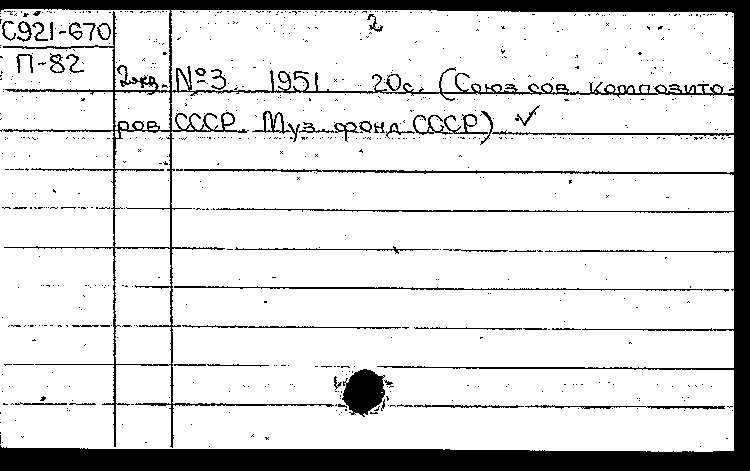 2
С921-670
П-82
2 экз. №3 1951. 20с. (Союз сов. композито-
ров СССР. Муз. фонд СССР) ✓